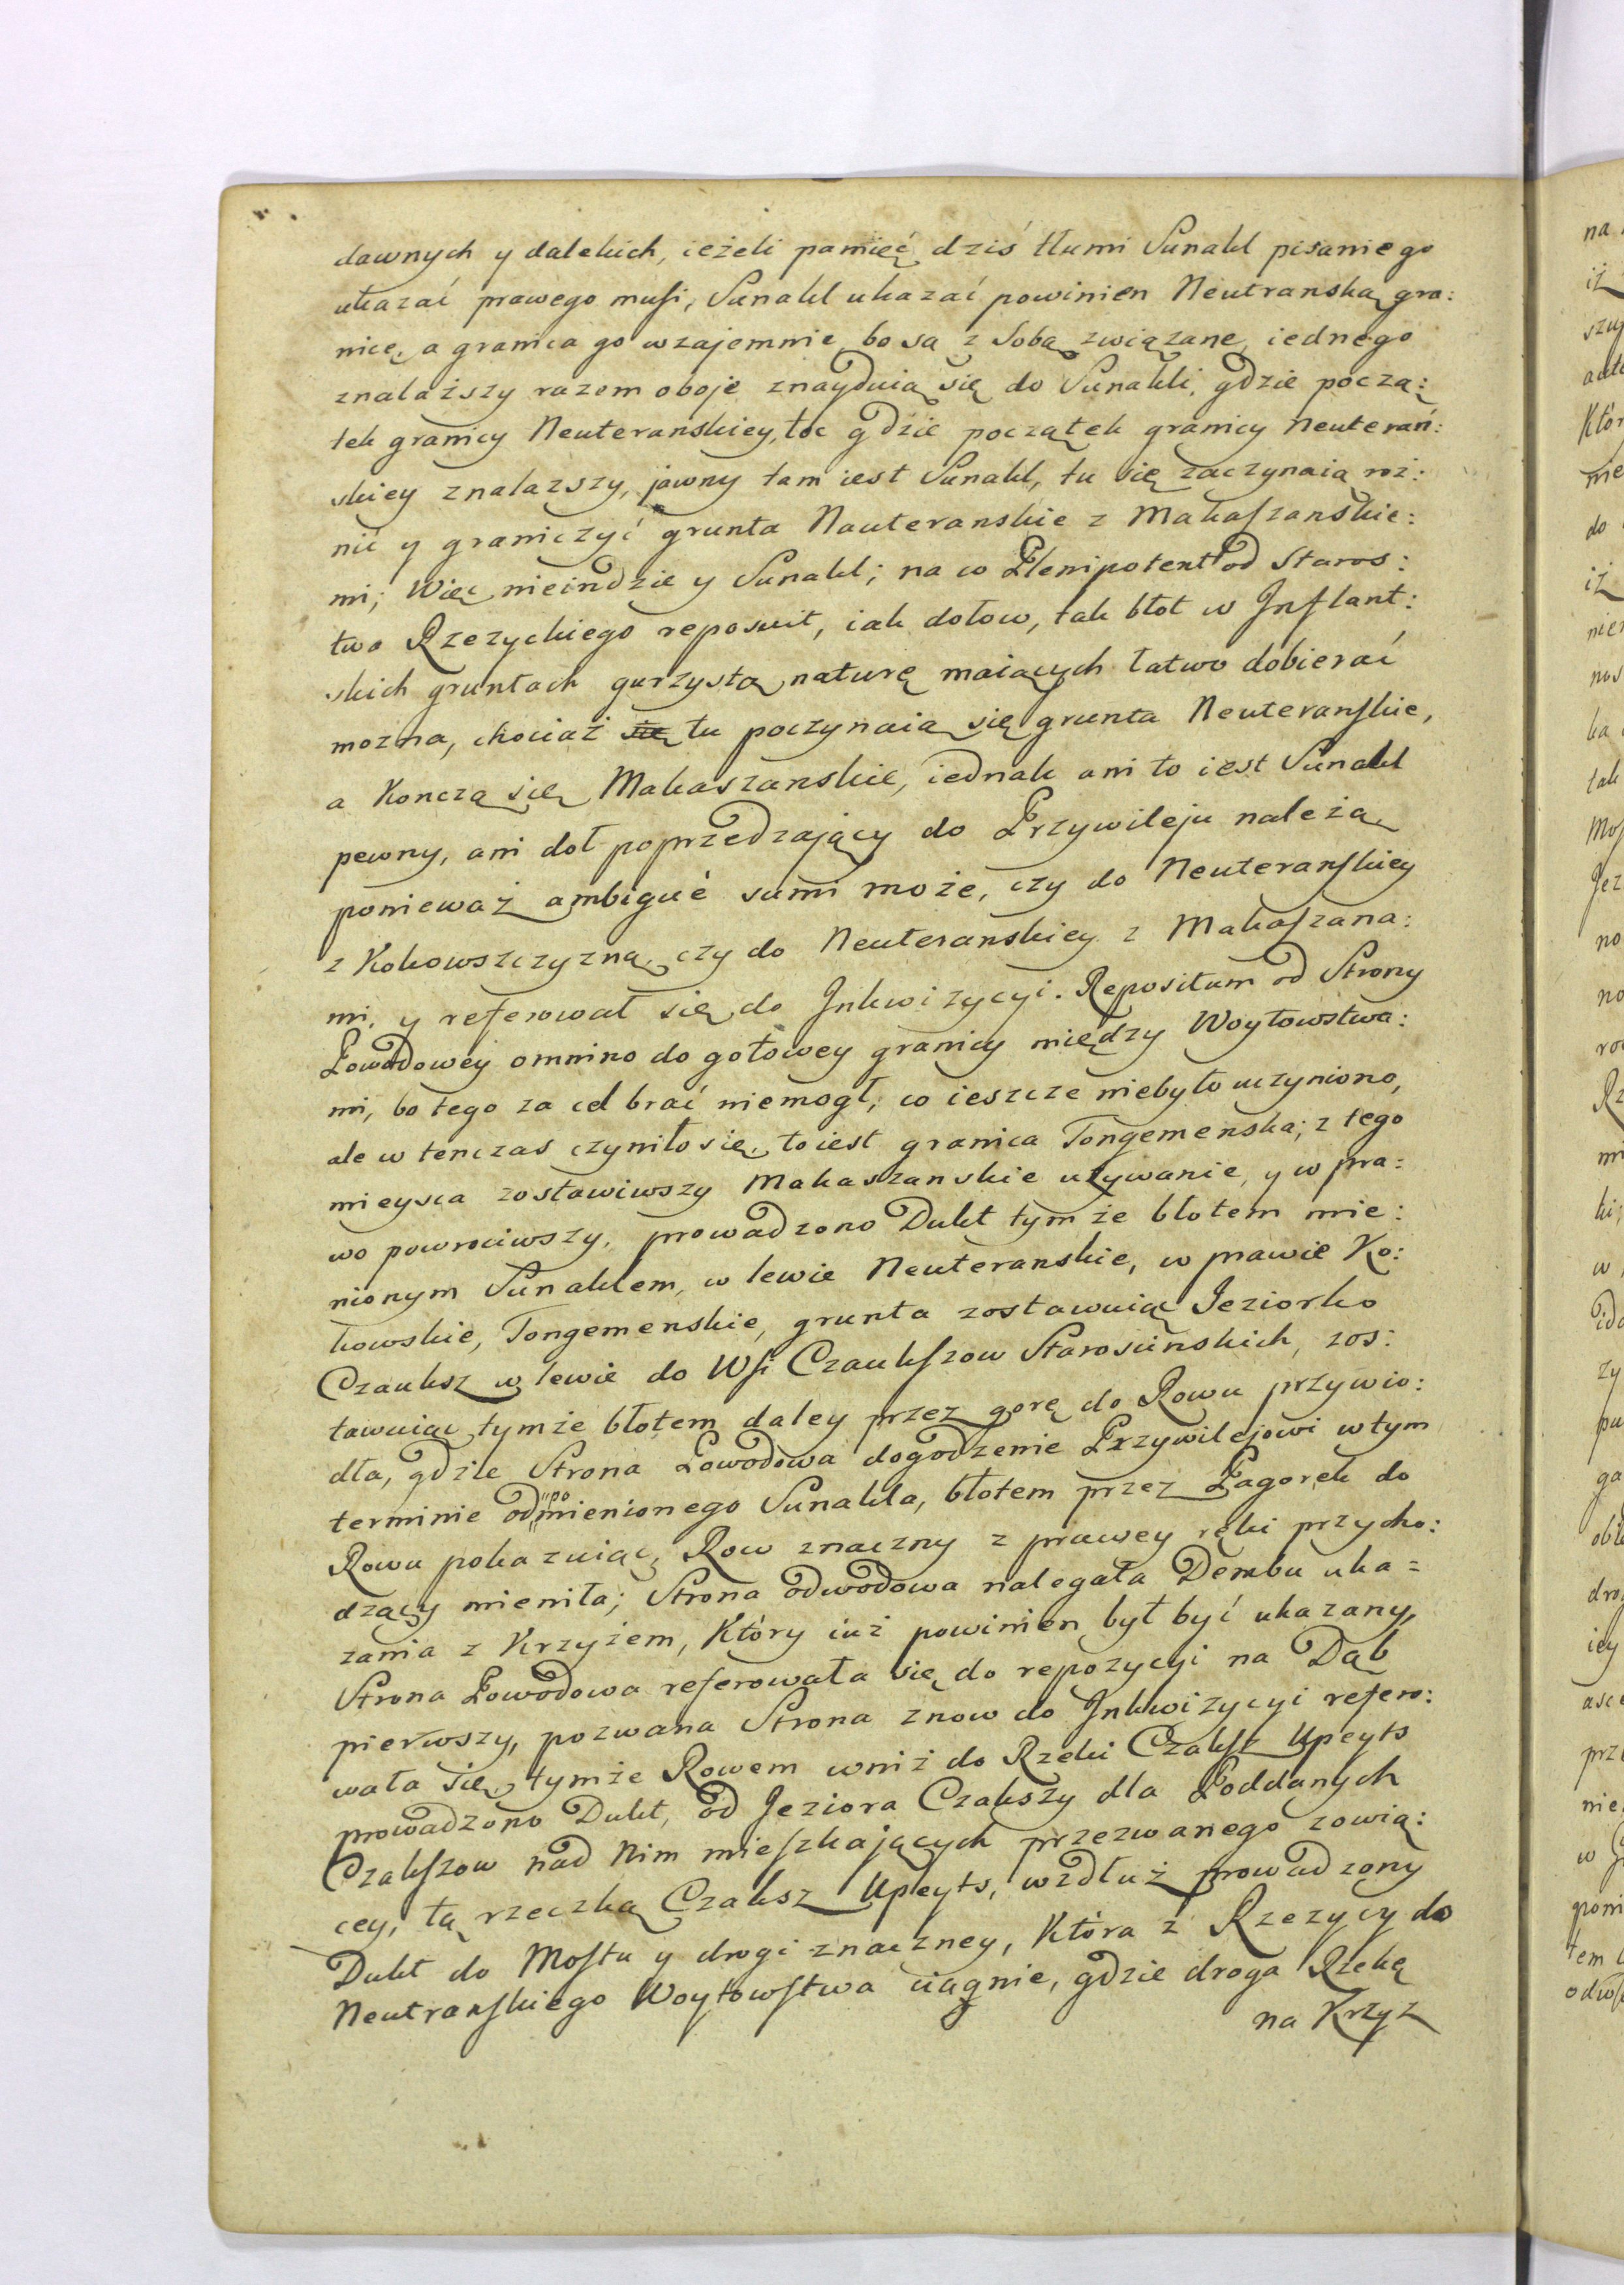 dawnych y dalekich, ieżeli pamięć dziś tłumi Sunakl pisaniego
ukazać prawego musi, Sunakl ukazać powinien Neutranską gra:
nicę, a granica go wzajemnie, bo są z Sobą związane, iednego
znalaższy razem oboje znayduią się do Sunakli, gdzie począ:
tek granicy Neuteranskiey, toć gdzie początek granicy Neuterań:
skiey znalazszy, jawny tam iest Sunakl, tu się zaczynaią roż:
nić y graniczyć grunta Nauteranskie z Makaszanskie:
mi; Więc nieindzie y Sunakl; na co Plenipotent od Staros:
twa Rzezyckiego reposuit, iak dołow, tak błot w Inflant:
skich gruntach gurzystą naturę maiących łatwo dobierać
mozna, chociaż się tu poczynaią się grunta Neuteranskie,
a Konczą się Makaszanskie, iednak ani to iest Sunakl
pewny, ani doł poprzedzający do Przywileju należą
ponieważ ambiguè sumi może, czy do Neuteranskiey
z Kokowszczyzną, czy do Neuteranskiey z Makaszana:
mi, y referował się do Inkwizycyi. Repositum od Strony
Powodowey omnino do gotowey granicy między Woytowstwa:
mi, bo tego za cel brać niemogł, co ieszcze niebyło uczyniono,
ale w tenczas czyniło się, to iest granica Tongemenska; z tego
mieysca zostawiwszy Makaszanskie używanie, y w pra:
wo powrociwszy, prowadzono Dukt tymże błotem mie:
nionym Sunaklem, w lewie Neuteranskie, w prawie Ko:
kowskie, Tongemenskie, grunta zostawuią Jeziorko
Czauksz w lewie do Wsi Czaukszow Starosunskich, zos:
tawuiąc tymże błotem daley przez gorę do Rowu przywio:
dła, gdzie Strona Powodowa dogodzenie Przywilejowi w tym
terminie od po mienionego Sunakla, błotem przez Pagorek do
Rowu pokazuiąc, Row znaczny z prawey ręki przycho:
dzący mieniła; Strona odwodowa nalegała Dembu uka=
zania z Krzyżem, Który iuż powinien był być ukazany,
Strona Powodowa referowała się do repozycyi na Dąb
pierwszy, pozwana Strona znow do Inkwizycyi refero:
wała się, tymże Rowem wniż do Rzeki Czaksz Upeyts
prowadzono Dukt, od Jeziora Czakszy dla Poddanych
Czakszow nad Nim mieszkających przezwanego zowią:
cey, tą rzeczką Czaksz Upeyts, wzdłuż prowadzony
Dukt do Mostu y drogi znaczney, Która z Rzezycy do
Neutranskiego Woytowstwa ciągnie, gdzie droga Rzekę
na Krzyż